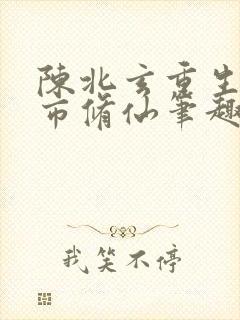 陳北玄重生
市脩仙筆趣
我笑不停